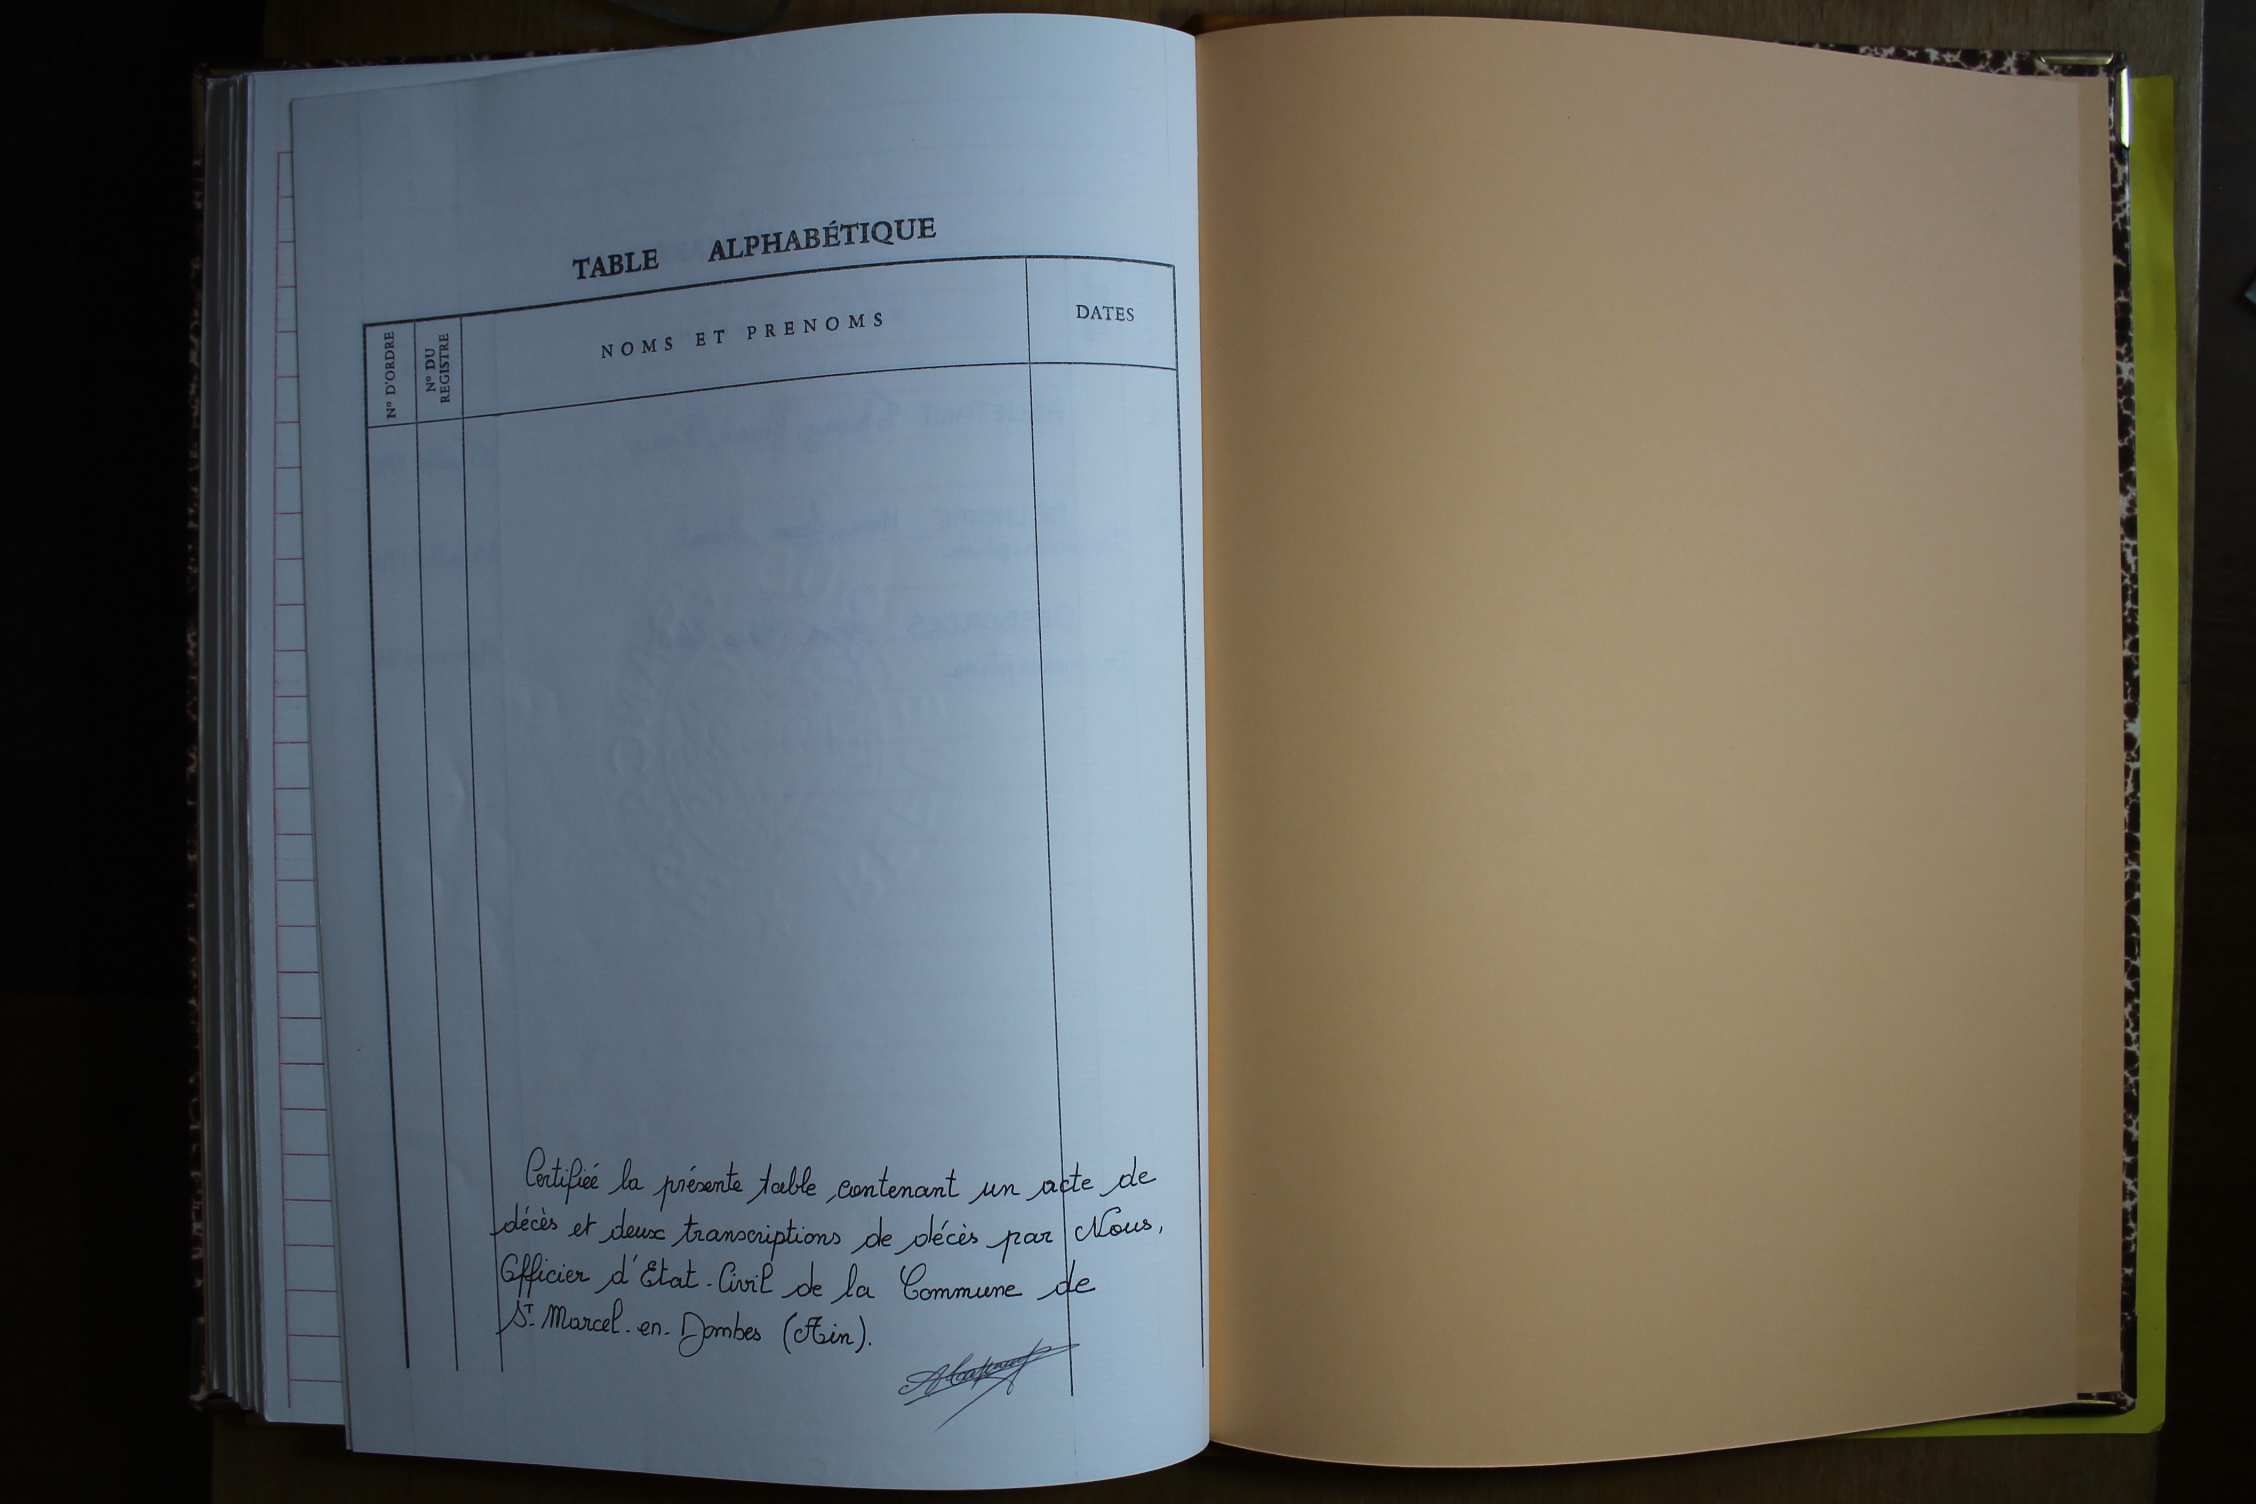 TABLE ALPHABÉTIQUE
N° D'ORDRE
N° DU REGISTRE
NOMS ET PRENOMS
DATES
Certifiée la présente table contenant un acte de
décès et deux transcriptions de décès par Nous,
Officier d'Etat-Civil de la Commune de
St-Marcel-en-Dombes (Ain).